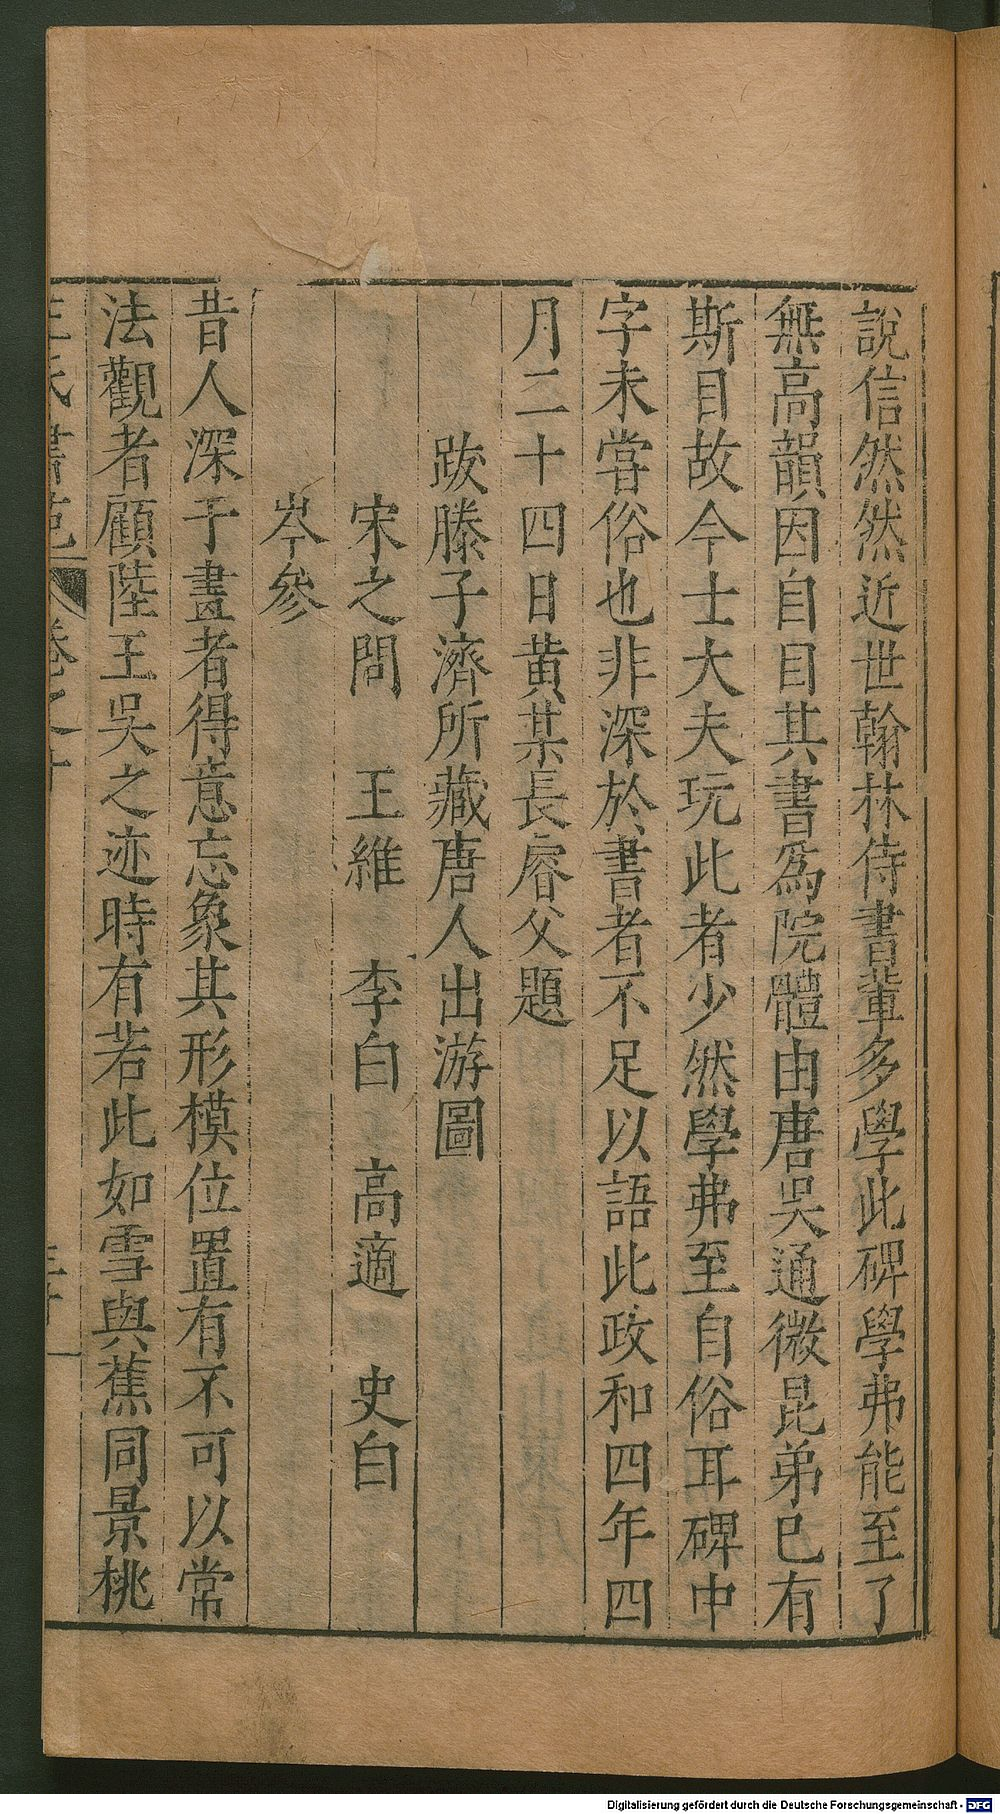 說信然然近世翰林侍書輩多學此碑學弗能至了
無高韻因自目其書為院體由唐吳通微昆弟已有
斯目故今士大夫玩此者少然學弗至自俗耳碑中
字未嘗俗也非深於書者不足以語此政和四年四
月二十四日黃某長睿父題
跋滕子濟所藏唐人出游圖
宋之問 王維 李白 高適 史白
岑參
昔人深于畫者得意忘象其形模位置有不可以常
法觀者顧陸王吳之迹時有若此如雪與蕉同景桃
王氏書苑 卷之十
Digitalisierung gefördert durch die Deutsche Forschungsgemeinschaft - DFG